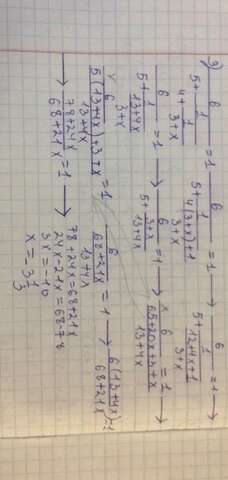 3) 6/(5+1/(4+1/(3+x))) =1 → 6/(5+1/((4(3+x)+1)/(3+x))) =1 → 6/(5+1/((12+4x+1)/(3+x))) =1 →
6/(5+1/((13+4x)/(3+x))) =1 → 6/(5+(3+x)/(13+4x)) =1 → 6/((65+20x+4+x)/(13+4x)) =1
6/((5(13+4x)+3+x)/(13+4x)) =1 → 6/((68+21x)/(13+4x)) =1 → 6(13+4x)/(68+21x) =1
→ (78+24x)/(68+21x) =1 → 78+24x=68+21x
24x-21x=68-78
3x=-10
x=3 1/3